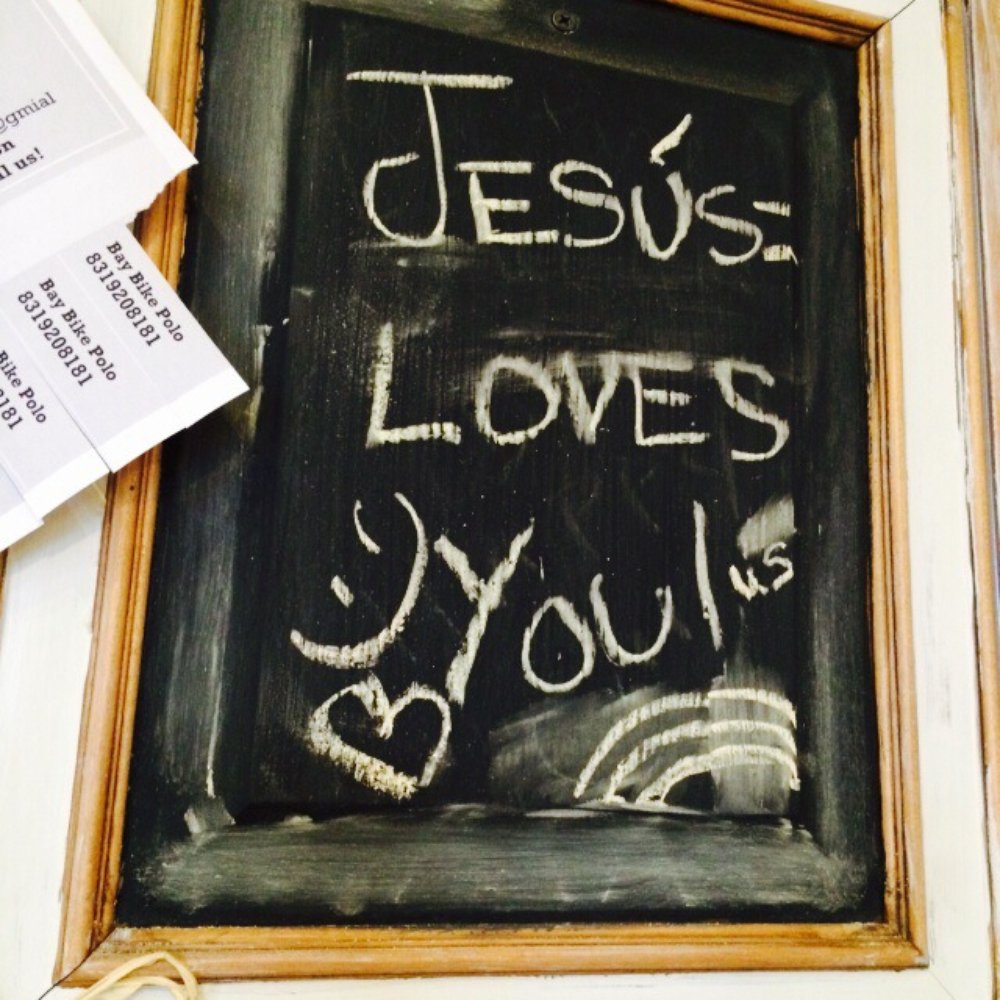 @gmial
on
l us!
Bay Bike Polo
8319208181
Bay Bike Polo
8319208181
Bike Polo
JESÚS
LOVES
YOU!
us